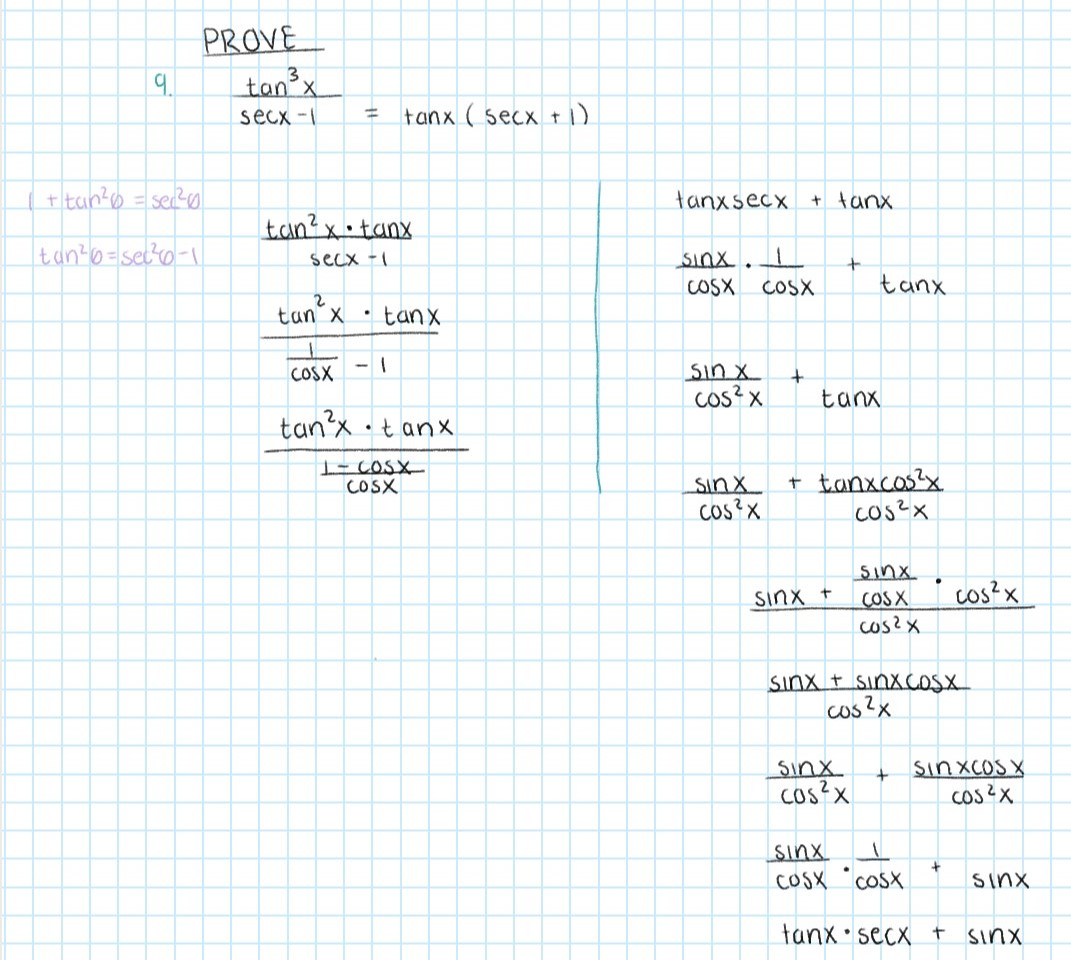 PROVE
9. tan³x / secx - 1 = tanx ( secx + 1 )
1 + tan²θ = sec²θ
tan²θ = sec²θ - 1
tan²x · tanx / secx - 1
tan²x · tanx / 1/cosx - 1
tan²x · tanx / 1 - cosx/cosx
tanxsecx + tanx
sinx/cosx · 1/cosx + tanx
sinx/cos²x + tanx
sinx/cos²x + tanxcos²x/cos²x
sinx + sinx/cosx · cos²x / cos²x
sinx + sinxcosx / cos²x
sinx/cos²x + sinxcosx/cos²x
sinx/cosx · 1/cosx + sinx
tanx · secx + sinx